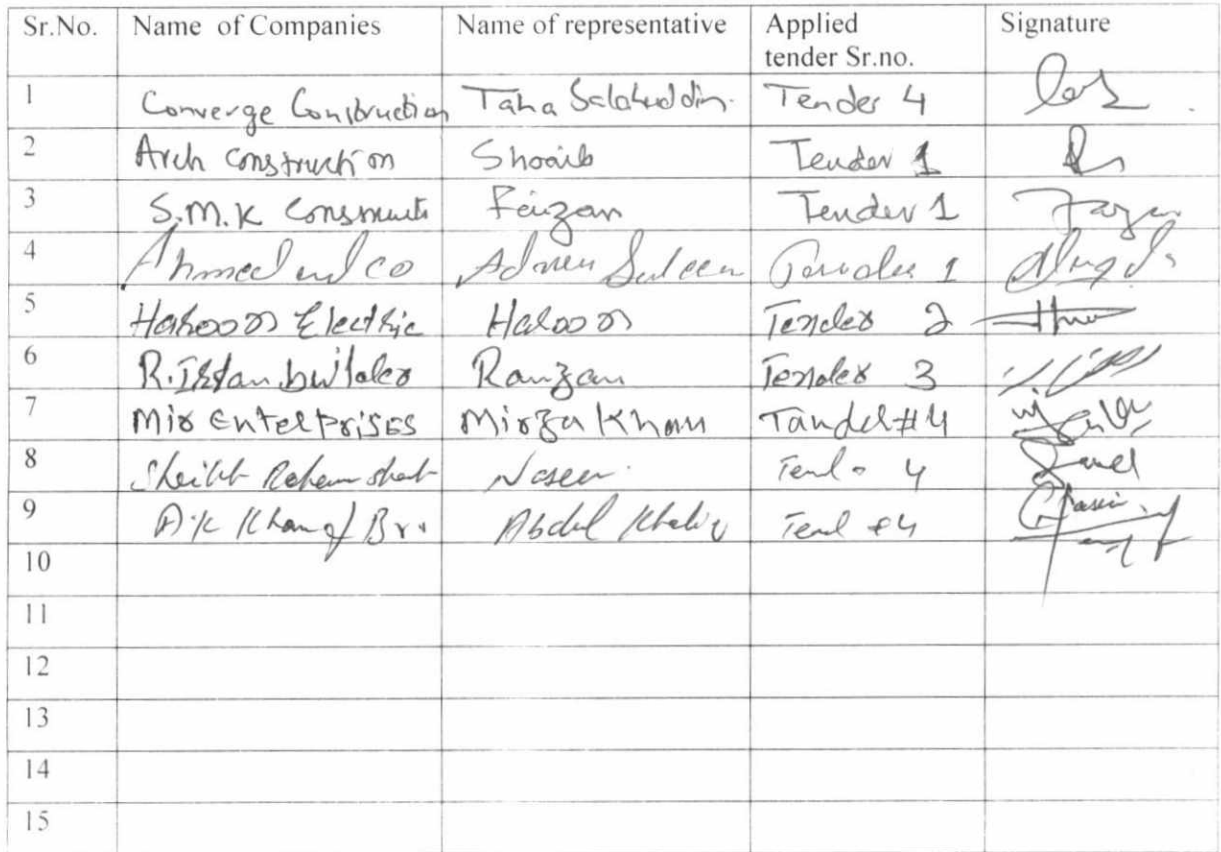 Sr.No. Name of Companies Name of representative Applied tender Sr.no. Signature
1 Converge Construction Taha Salahuddin. Tender 4
2 Arch Construction Shoaib Tender 1
3 S.M.K Faizan Tender 1
4 Ahmed and co Tender 1
5 Haroon Electric Haroon Tender 2
6 Ramzan Tender 3
7 Mir Enterprises Mirza Khan Tander #4
8 Sheikh Naseer Tend - 4
9 A.K Khan & Br. Abdul Khaliq Tend #4
10
11
12
13
14
15